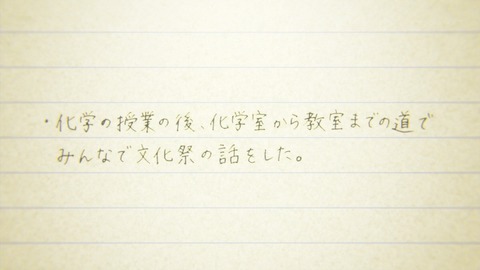 ・化学の授業の後、化学室から教室までの道で
みんなで文化祭の話をした。